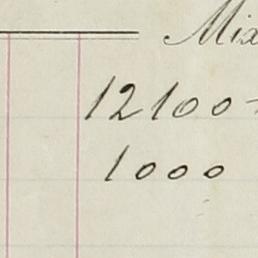 Mix
12100
1000